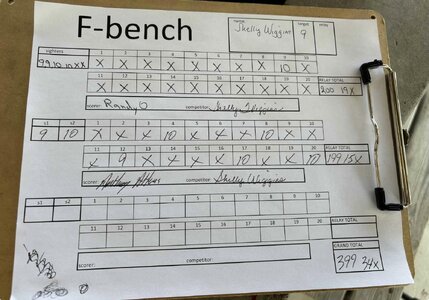 F-bench
name: Shelly Wiggins target: 9 relay
sighters 1 2 3 4 5 6 7 8 9 10
9 9 10 10 X X X X X X X X X X 10 X
11 12 13 14 15 16 17 18 19 20 RELAY TOTAL
X X X X X X X X X X 200 19X
scorer: Randy O competitor:
s1 s2 1 2 3 4 5 6 7 8 9 10
9 10 X X X 10 X X X 10 X X
11 12 13 14 15 16 17 18 19 20 RELAY TOTAL
X 9 X X X X 10 X X 10 199 15X
scorer: competitor: Shelly Wiggins
s1 s2 1 2 3 4 5 6 7 8 9 10
11 12 13 14 15 16 17 18 19 20 RELAY TOTAL
GRAND TOTAL
scorer: competitor: 399 34X